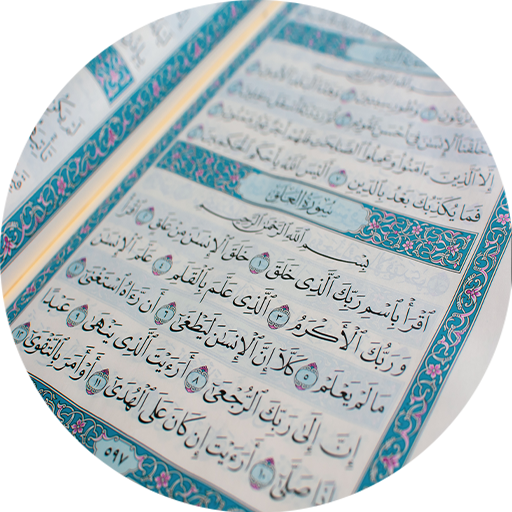 خَلَقْنَا ٱلْإِنسَٰنَ فِىٓ أَحْسَنِ تَقْوِيمٍ ٤ ثُمَّ رَدَدْنَٰهُ أَسْفَلَ سَٰفِلِينَ ٥
إِلَّا ٱلَّذِينَ ءَامَنُوا۟ وَعَمِلُوا۟ ٱلصَّٰلِحَٰتِ فَلَهُمْ أَجْرٌ غَيْرُ مَمْنُونٍ ٦
فَمَا يُكَذِّبُكَ بَعْدُ بِٱلدِّينِ ٧ أَلَيْسَ ٱللَّهُ بِأَحْكَمِ ٱلْحَٰكِمِينَ ٨
سُورَةُ الْعَلَقِ
بِسْمِ ٱللَّهِ ٱلرَّحْمَٰنِ ٱلرَّحِيمِ
ٱقْرَأْ بِٱسْمِ رَبِّكَ ٱلَّذِى خَلَقَ ١ خَلَقَ ٱلْإِنسَٰنَ مِنْ عَلَقٍ ٢ ٱقْرَأْ
وَرَبُّكَ ٱلْأَكْرَمُ ٣ ٱلَّذِى عَلَّمَ بِٱلْقَلَمِ ٤ عَلَّمَ ٱلْإِنسَٰنَ
مَا لَمْ يَعْلَمْ ٥ كَلَّآ إِنَّ ٱلْإِنسَٰنَ لَيَطْغَىٰٓ ٦ أَن رَّءَاهُ ٱسْتَغْنَىٰٓ ٧
إِنَّ إِلَىٰ رَبِّكَ ٱلرُّجْعَىٰٓ ٨ أَرَءَيْتَ ٱلَّذِى يَنْهَىٰ ٩ عَبْدًا
إِذَا صَلَّىٰٓ ١٠ أَرَءَيْتَ إِن كَانَ عَلَى ٱلْهُدَىٰٓ ١١ أَوْ أَمَرَ بِٱلتَّقْوَىٰٓ ١٢
٥٩٧